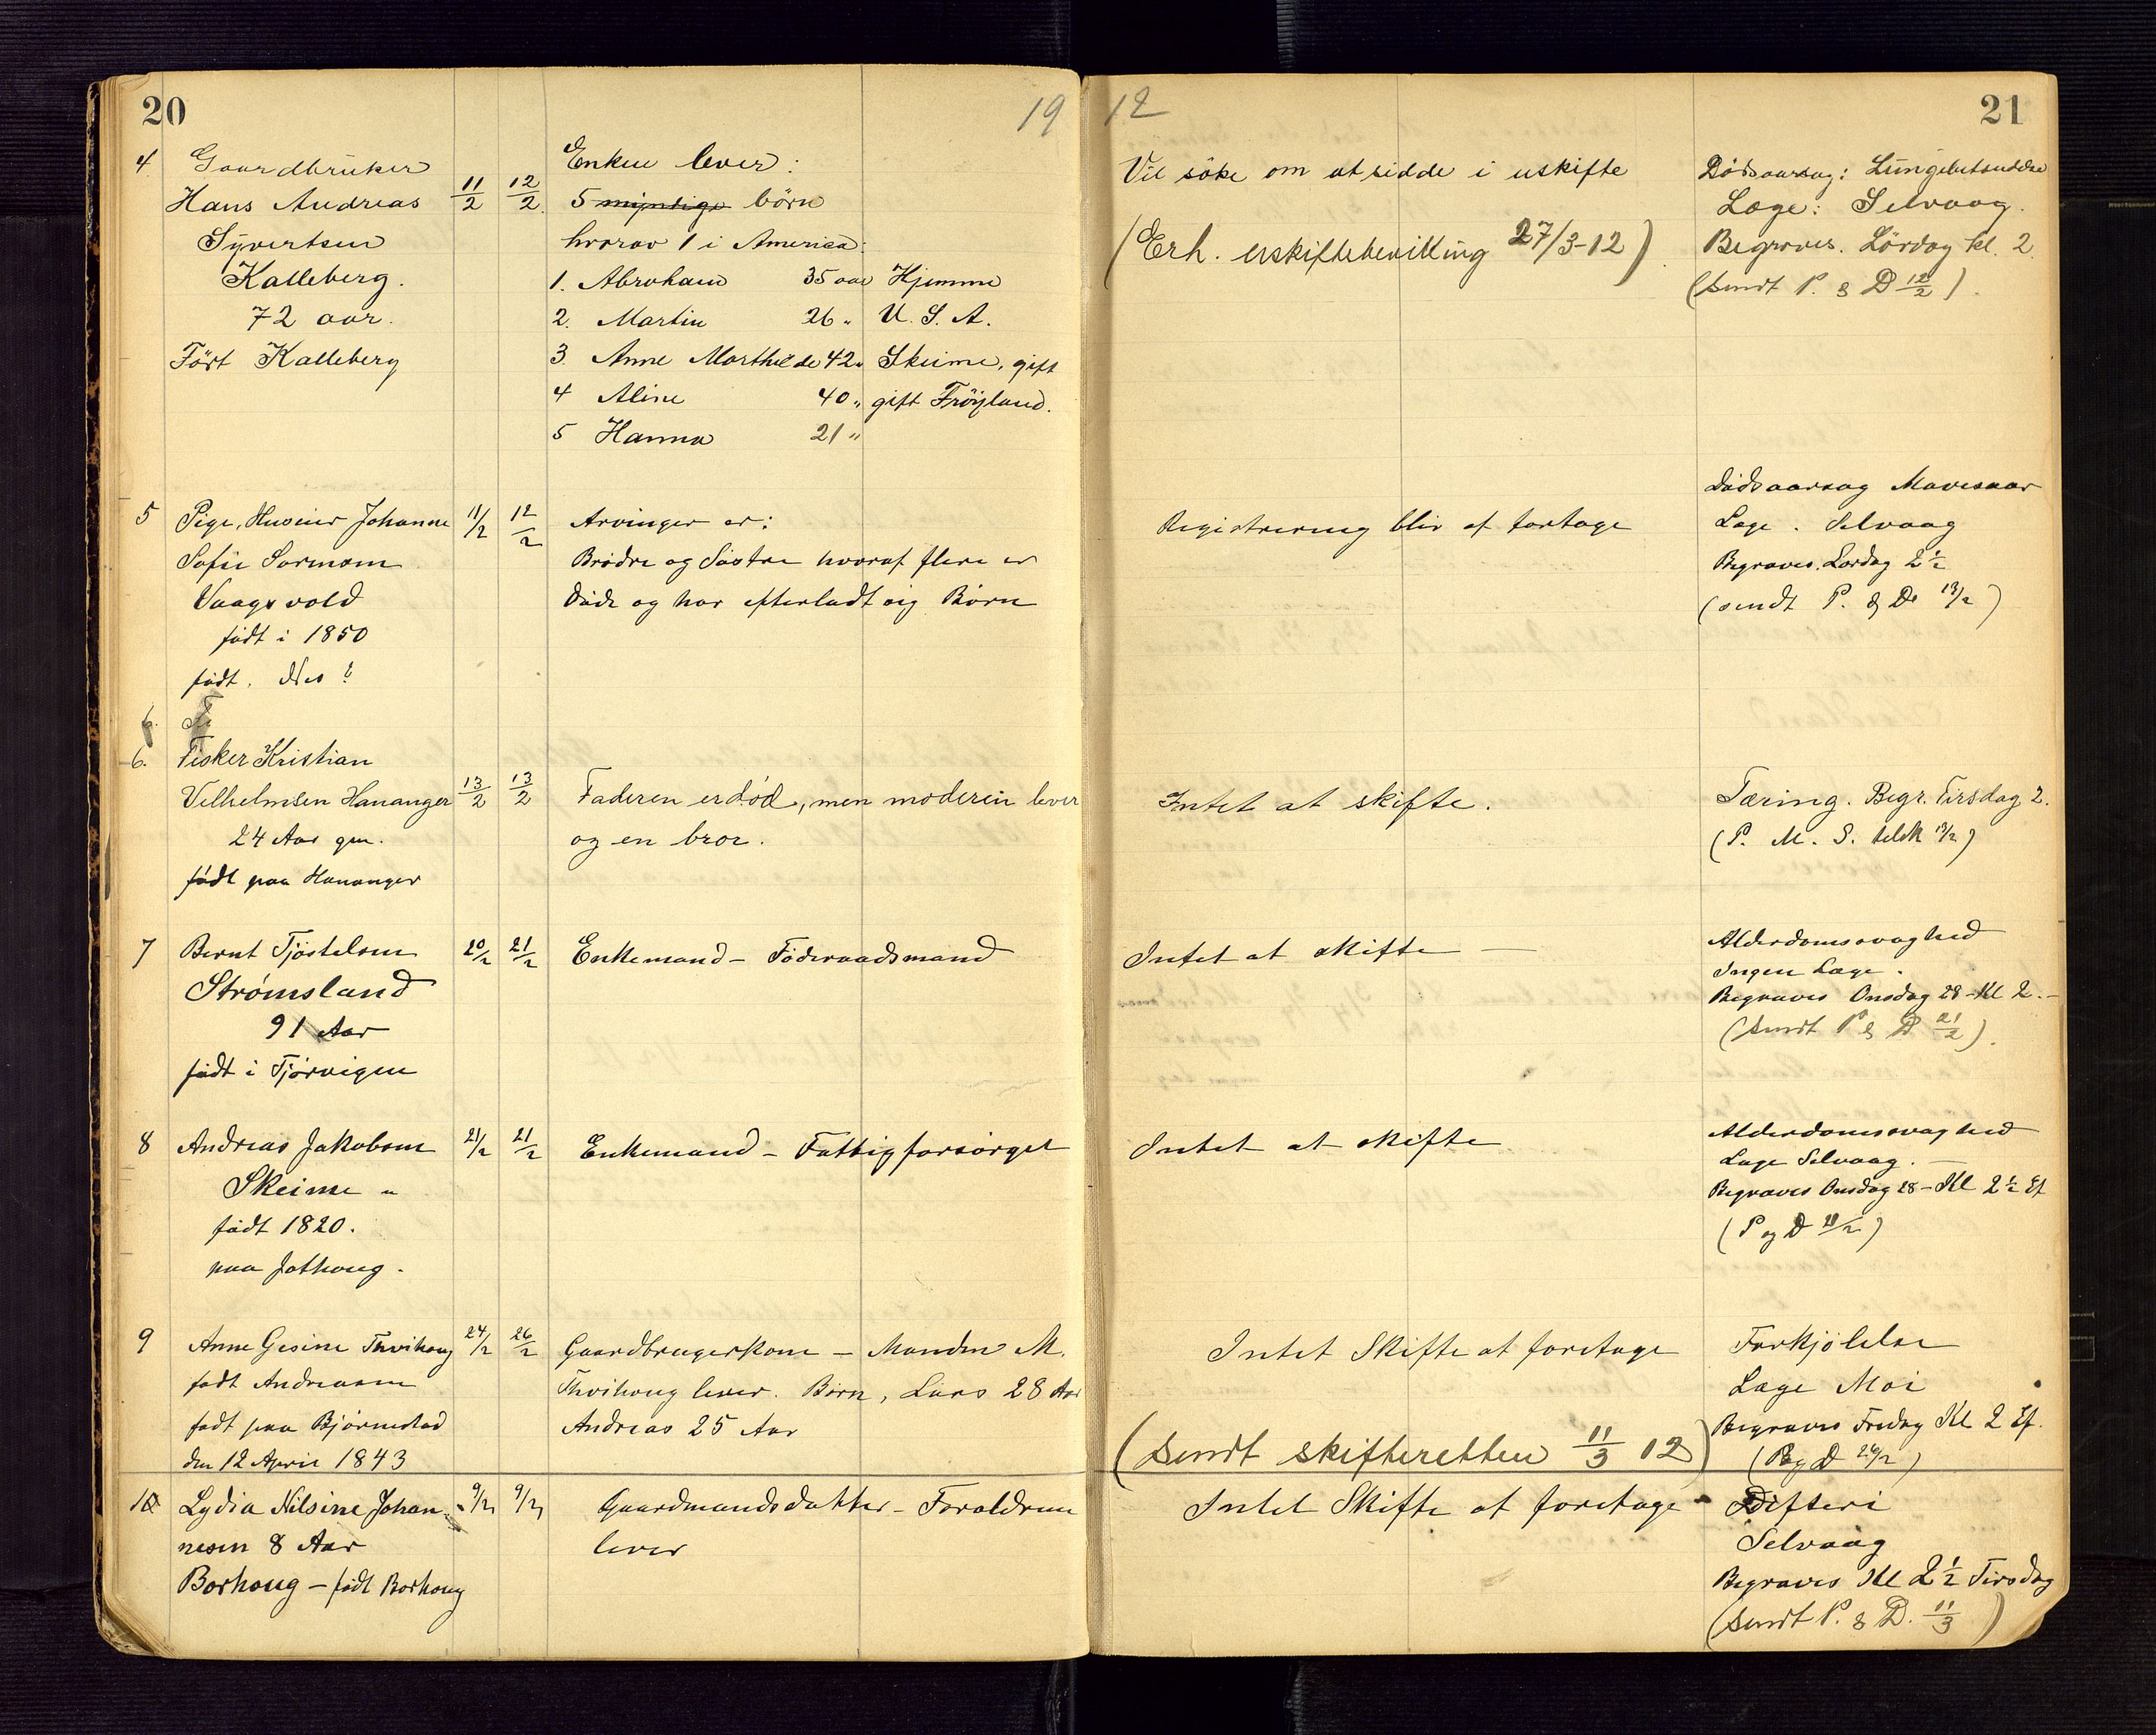 20
19
12
21
4
Gaardbruker
Hans Andreas
Syvertsen
Kalleberg.
72 aar.
Födt Kalleberg
11/2
12/2
Enken lever:
5 myndige börn
hvorav 1 i America:
1. Abraham 35 aar Hjemme
2. Martin 26 " U. S. A.
3 Anne Marthilde 42 " Skeime, gift
4 Aline 40 " gift Fröyland.
5 Hanna 21 "
Vil söke om at sidde i uskifte
(Erh. uskiftebevilling 27/3-12)
Dödsaarsag: Lungebetændelse
Læge: Selvaag.
Begraves. Lördag kl. 2.
(sendt P. & D 12/2).
5
Pige, Johanne
Sofie Sørensen
Vaagsvold
født i 1850
født. Nes ?
11/2
12/2
Arvinger er:
Brødre og Søstre hvoraf flere er
døde og har efterladt sig Børn
Registrering bliv at foretage
Dødsaarsag Mavesaar
Læge. Selvaag
Begraves. Lørdag 2 1/2
(sendt P. & D 13/2)
6.
6.
Fisker Kristian
Vilhelmsen Hananger
24 Aar gm.
født paa Hananger
13/2
13/2
Faderen er død, men moderen lever
og en bror.
Intet at skifte.
Tæring. Begr. Tirsdag 2.
(P. M. S. 13/2)
7
Bernt Tjøstelsen
Strømsland
91 Aar
født i Tjørvigen
20/2
21/2
Enkemand – Föderaadsmand
Intet at skifte —
Alderdomssvaghed
Ingen Læge.
Begraves Onsdag 28 – Kl 2. –
(sendt P & D 21/2).
8
Andreas Jakobsen
Skeime
født 1820.
paa Jøthoug.
21/2
21/2
Enkemand – Fattigforsørget
Intet at skifte
Alderdomssvaghed
Læge Selvaag. –
Begraves Onsdag 28 – Kl 2 1/2 Ef
(P og D 21/2)
9
Anne Gesine Thvihoug
født Andreasen
født paa Bjørnestad
den 12 April 1843
24/2
26/2
Gaardbrugerkone – Manden M.
Thvihoug lever. Børn, Lars 28 Aar
Andreas 25 Aar
Intet Skifte at foretage
(sendt skifteretten 11/3 12)
Forkjølelse
Læge Moi
Begraves Fredag Kl 2 Ef.
(P og D 26/2)
10
Lydia Nilsine Johan-
nesen 8 Aar
Borhoug – født Borhoug
9/3
9/3
Gaardmandsdatter – Forældrene
lever
Intet Skifte at foretage
Difteri
Selvaag
Begraves Kl 2 1/2 Tirsdag
(sendt P. & D. 11/3)